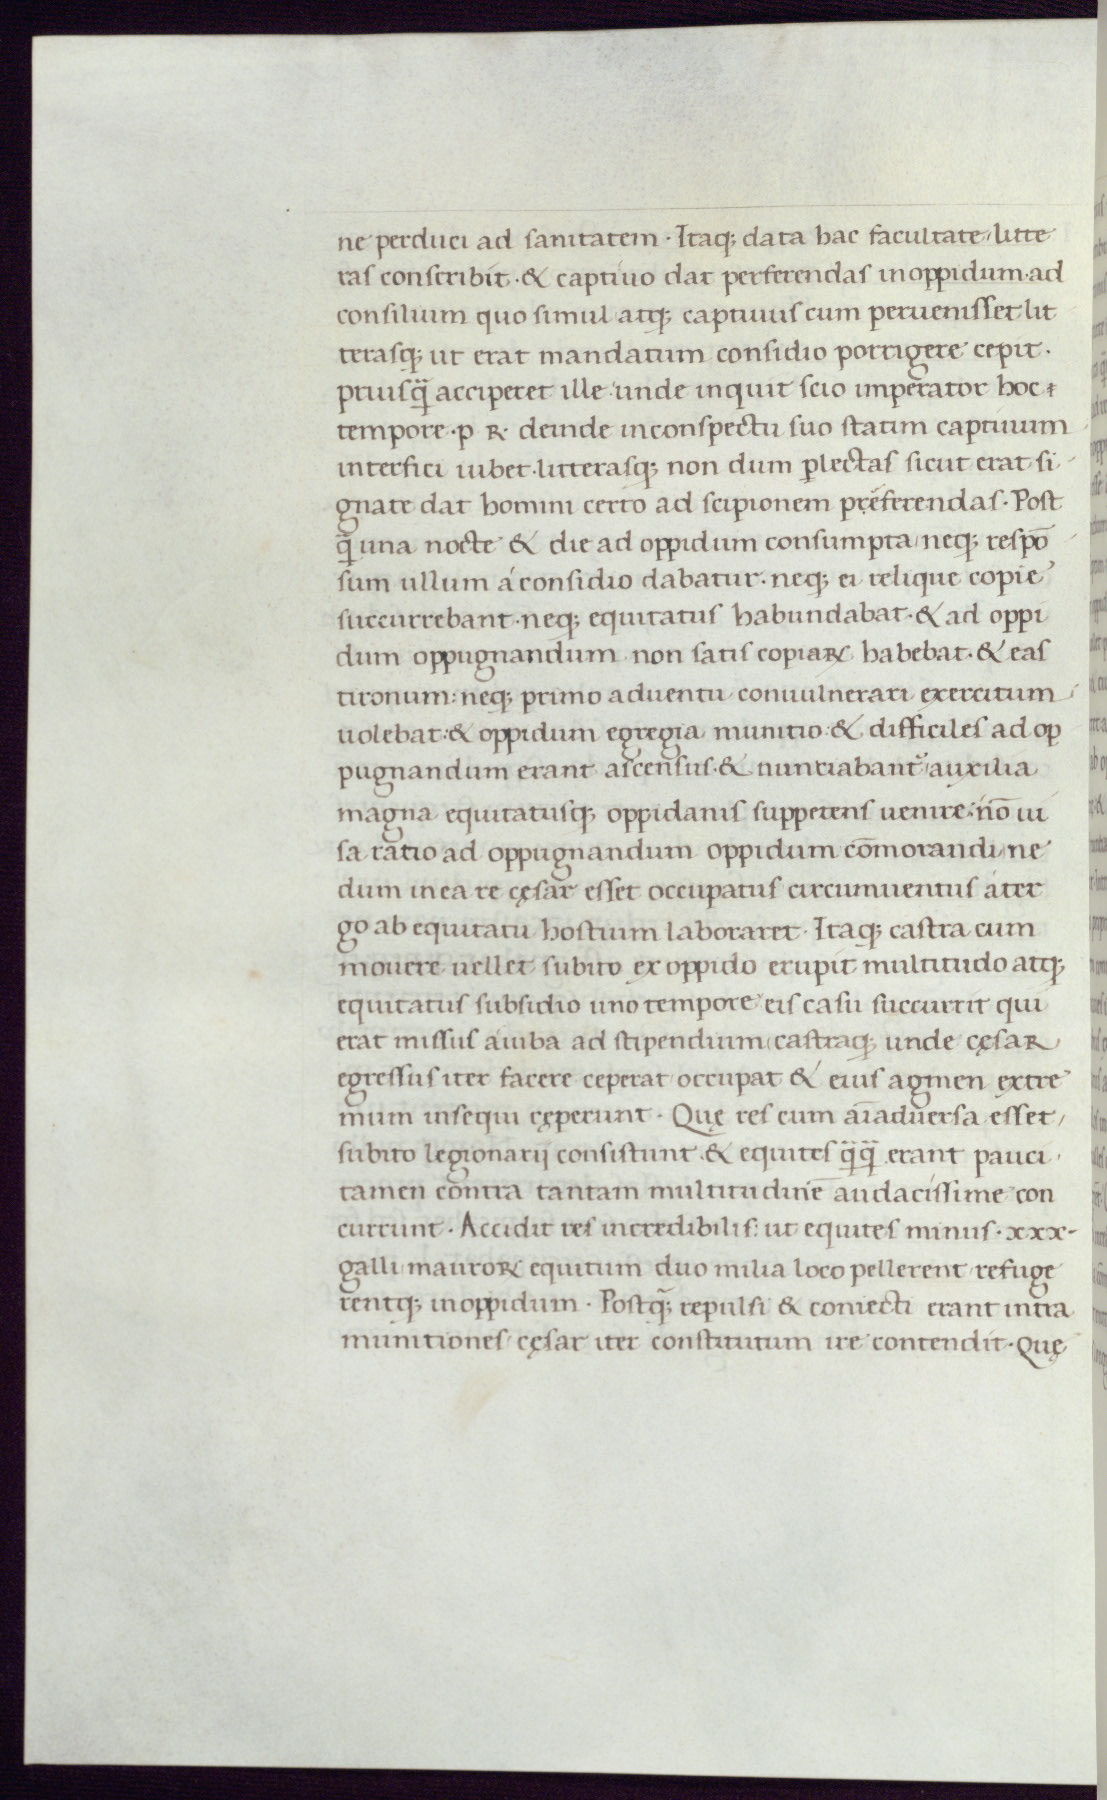 ne perduci ad sanitatem · Itaq; data hac facultate litte
ras conscribit · & captiuo dat perferendas in oppidum · ad
consilium quo simul atq; captiuus cum peruenisset lit
terasq; ut erat mandatum considio porrigere cepit ·
priusq̃ acciperet ille unde inquit scio imperator hoc
tempore · p R · deinde in conspectu suo statim captiuum
interfici iubet · litterasq; non dum plectas sicut erat si
gnate dat homini certo ad scipionem preferendas · Post
q̃ una nocte & die ad oppidum consumpta neq; respō
sum ullum á considio dabatur · neq; ei relique copie
succurrebant · neq; equitatus habundabat · & ad oppi
dum oppugnandum non satis copiaꝝ habebat · & eas
tironum : neq; primo aduentu conuulnerari exercitum
uolebat : & oppidum egregia munitio : & difficiles ad op
pugnandum erant ascensus · & nuntiabant᷑ auxilia
magna equitatusq; oppidanis suppetens uenire : nō ui
sa ratio ad oppugnandum oppidum cōmorandi ne
dum in ea re cęsar esset occupatus circumuentus á ter
go ab equitatu hostium laboraret · Itaq; castra cum
mouere uellet subito ex oppido erupit multitudo atq;
equitatus subsidio uno tempore eis casu succurrit qui
erat missus a iuba ad stipendium castraq; unde cęsaR
egressus iter facere ceperat occupat & eius agmen extre
mum insequi cęperunt · Quę res cum aīaduersa esset
subito legionarij consistunt · & equites q̃q̃ erant pauci
tamen contra tantam multitudinē audacissime con
currunt · Accidit res incredibilis : ut equites minus · xxx ·
galli mauroꝝ equitum duo milia loco pellerent refuge
rentq; in oppidum · Postq̃ repulsi & coniecti erant intra
munitiones cęsar iter constitutum ire contendit · Quę